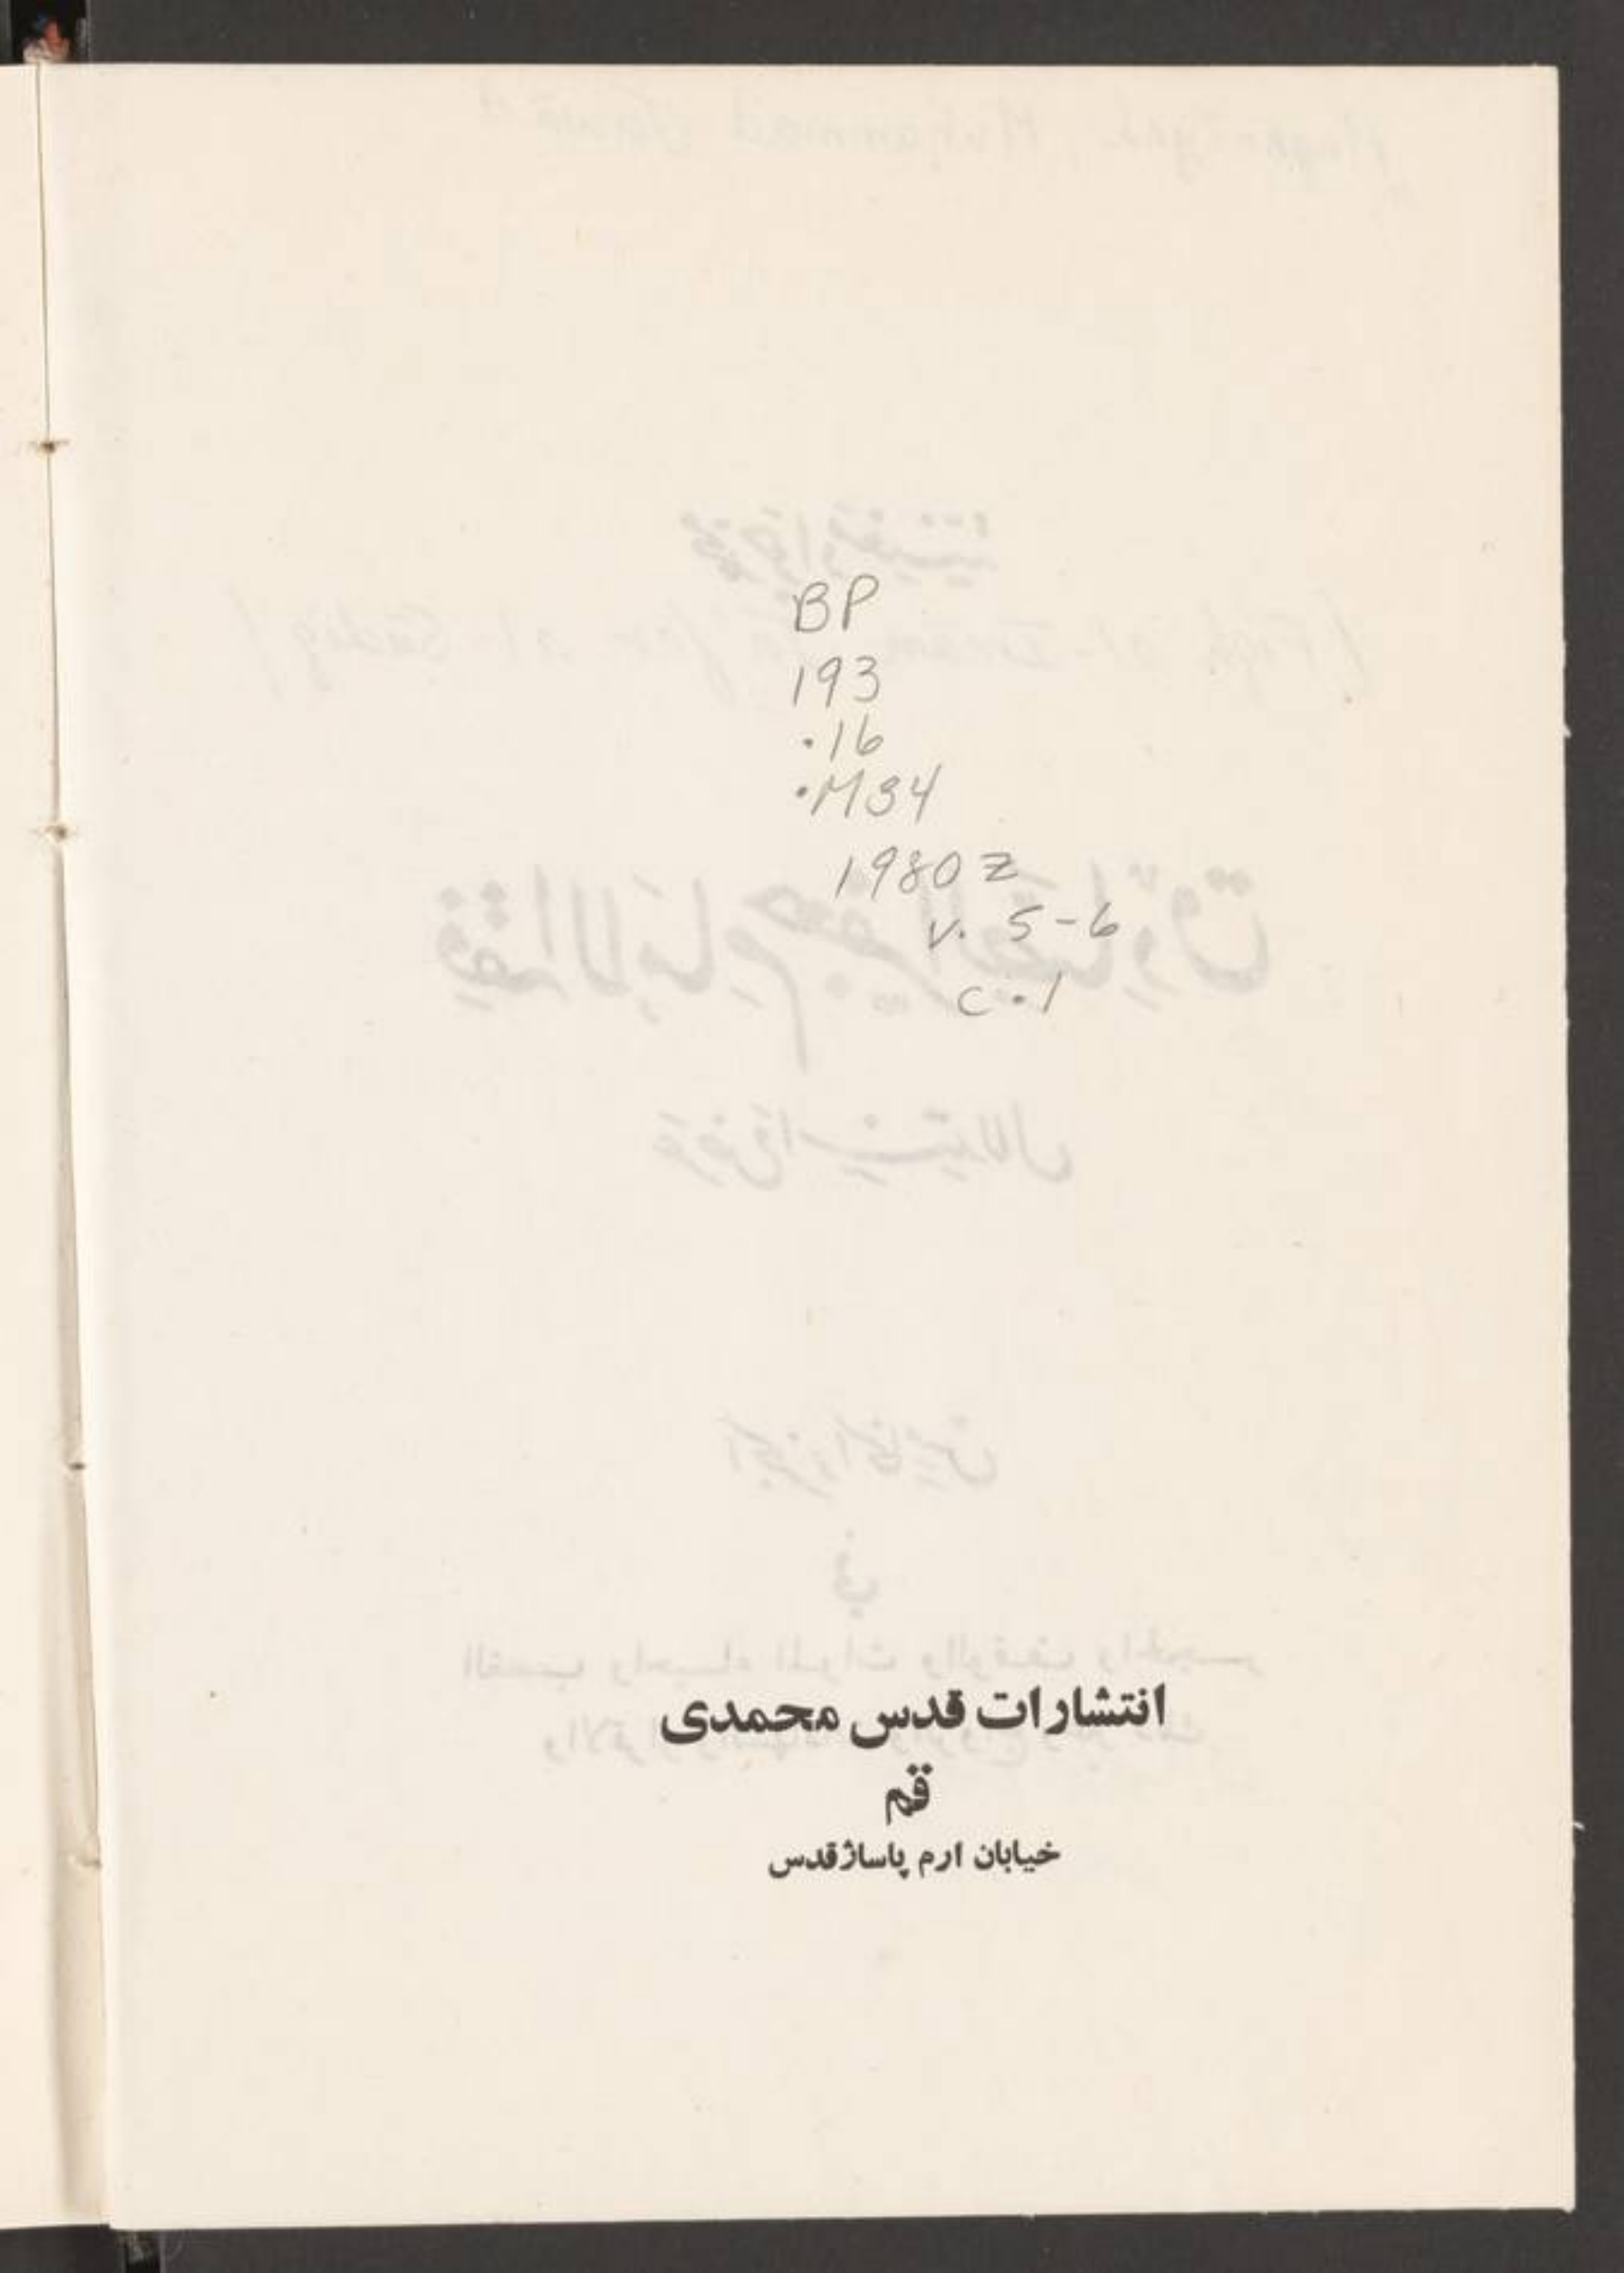 BP
193
.16
.M34
1980z
v. 5-6
c.1
انتشارات قدس محمدی
قم
خیابان ارم پاساژقدس